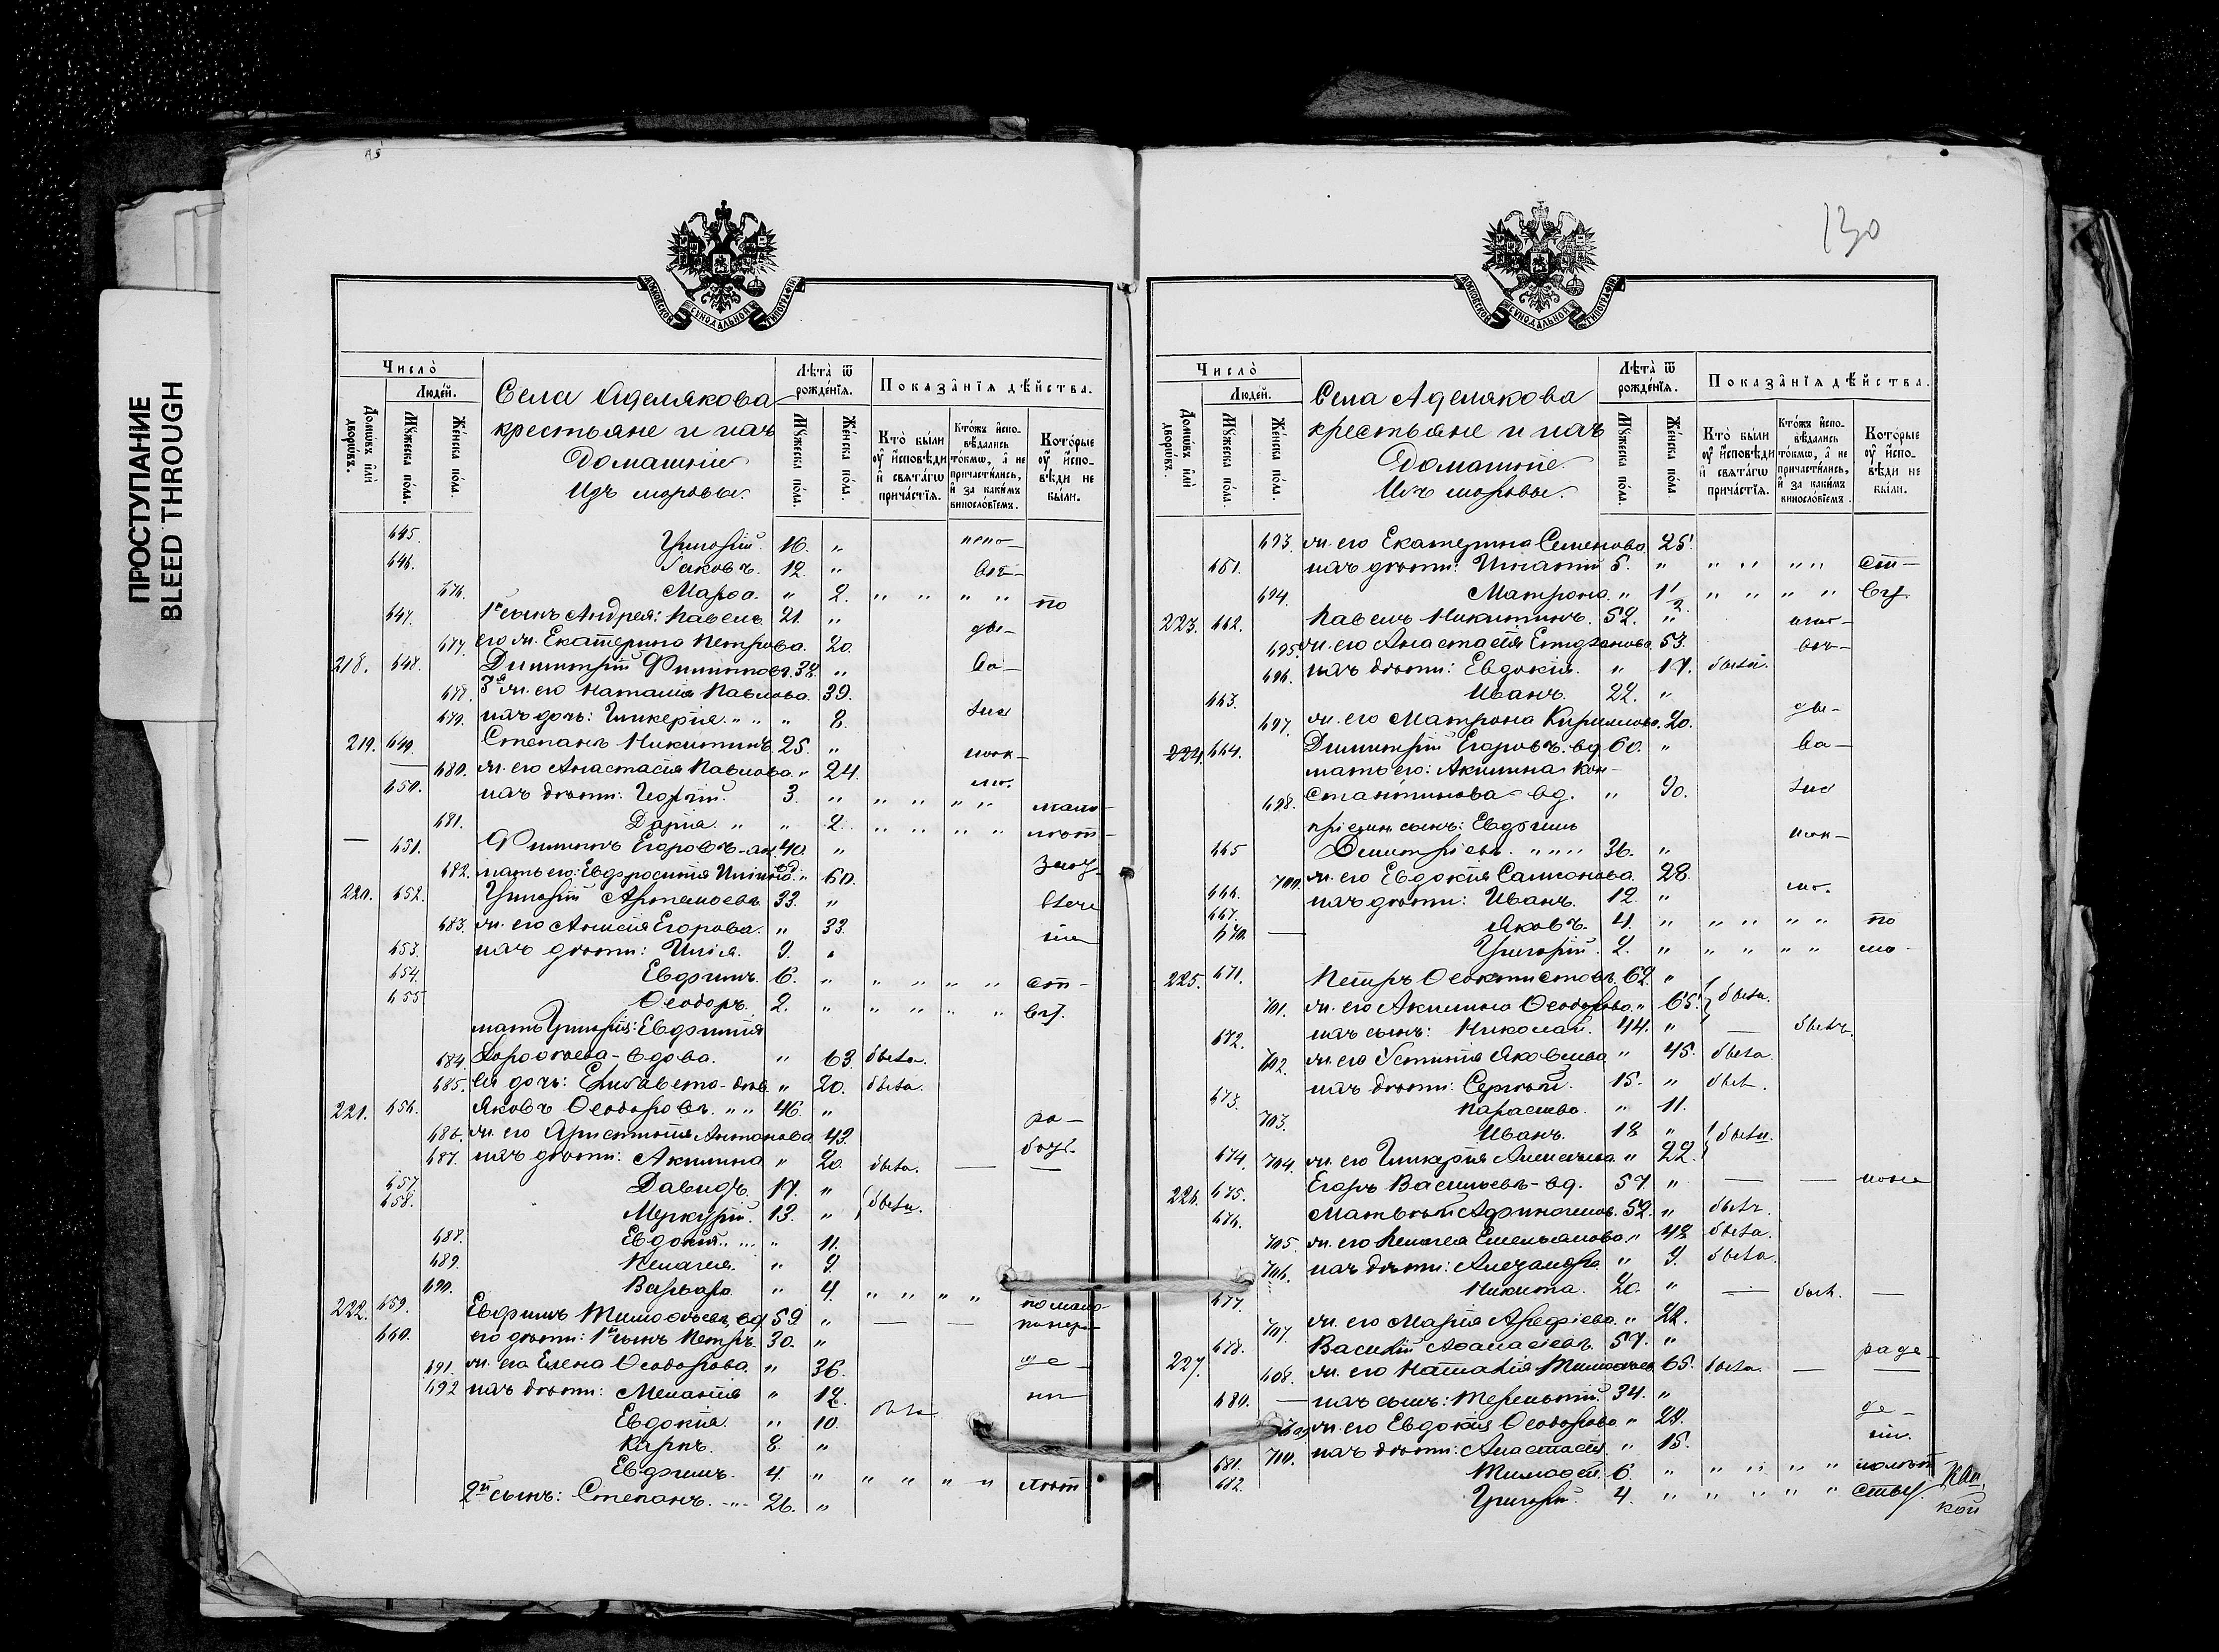 ПРОСТУПАНИЕ
BLEED THROUGH
МОСКОВСКОЙ СУНОДАЛЬНОЙ ТИПОГРАФІИ
Число̀
Людей.
Домѡвъ или дворѡвъ.
Мꙋжеска пола.
Женска пола.
Села Аделякова
крестьяне и ихъ
домашніе
Изъ мордвы.
Лѣта̀ ѿ рожденїѧ.
Мꙋжеска пола.
Женска пола.
Показанїѧ дѣйства.
Кто̀ были оу исповѣди и свѧтагѡ причастїѧ.
Ктожъ исповѣдались токмѡ, а не причастились, и за какимъ винословїемъ.
Которые оу исповѣди не были.
645. Григорій. 16. „
646. Іаковъ. 12. „
676. Марѳа. „ 2. „ „ „ „ по
647. 1й сынъ Андрея: Павелъ. 21. „
677. его ж. Екатерина Петрова. 20.
218. 648. Димитрій Филиппов. 38. „
678. 3я ж. его Наталія Павлова. 39.
679. ихъ дочь: Гликерія. „ „ „ 8.
219. 649. Степанъ Никитинъ. 25. „
680. ж. его Анастасія Павлова. „ 24.
650. ихъ дѣти: Георгій. 3. „ „ „ „ „ мало-
681. Дарія. „ „ 2. „ „ „ „ лѣт-
651. Филиппъ Егоровъ 40. „
682. мать его: Евфросинія „ 60.
220. 652. Григорій Артемьевъ. 33. „
683. ж. его Анисія Егорова. „ 33.
653. ихъ дѣти: Илія. 9.
654. Евфимъ. 6. „ „ „ „ „ ст-
655 Ѳеодоръ. 2. „ „ „ „ „ ву.
мать Григорія: Евфимія
684. Дороѳеева - вдова. „ 63. была.
685. ея дочь: Елисавета „ 20. была.
221. 656. Яковъ Ѳеодоровъ. „ „ 46. „
686. ж. его Антонова 43.
687. ихъ дѣти: Акилина „ 20. была. —
657. Давидъ. 17. „
658. Меркурій. 13. „ были.
688. Евдокія. „ 11.
689. Пелагея. „ 9.
690. Варвара. „ 4. „ „ „ „ по мало-
222. 659. Евфимъ Тимоѳеевъ, вд. 59 „ — —
660. его дѣти: 1й сынъ Петръ. 30. „
691. ж. его Елена Ѳеодорова. „ 36.
692 ихъ дѣти: Меланія „ 12.
Евдокія. „ 10.
Карпъ. 8. „
Евфимъ. 4. „ „ „ „ „ лѣт
2й сынъ: Степанъ. 26. „
130
МОСКОВСКОЙ СУНОДАЛЬНОЙ ТИПОГРАФІИ
Число̀
Людей.
Домѡвъ или дворѡвъ.
Мꙋжеска пола.
Женска пола.
Села Аделякова
крестьяне и ихъ
домашніе.
Изъ мордвы.
Лѣта̀ ѿ рожденїѧ.
Мꙋжеска пола.
Женска пола.
Показанїѧ дѣйства.
Кто̀ были оу исповѣди и свѧтагѡ причастїѧ.
Ктожъ исповѣдались токмѡ, а не причастились, и за какимъ винословїемъ.
Которые оу исповѣди не были.
693. ж. его Екатерина Семенова. 25.
661. ихъ дѣти: Игнатій 5. „ „ „ „ „ ст-
694. Матрона. „ 1 1/2. „ „ „ „ ву.
223. 662. Павелъ Никитинъ. 52. „
695. ж. его Анастасія 53.
696. ихъ дѣти: Евдокія. „ 17. были.
663. Иванъ. 22. „
697. ж. его Матрона Кириллова. 20.
224. 664. Димитрій Егоровъ. вд. 60. „
мать его: Акилина Кон-
698. стантинова - вд. „ 90.
сынъ: Евфимъ
665 Димитріевъ. „ „ „ 36. „
700. ж. его Евдокія 28.
666. ихъ дѣти: Иванъ. 12. „
667. Яковъ. 4. „ „ „ „ „ по
670. — Григорій. 2. „ „ „ „ „
225. 671. Петръ Ѳеоктистовъ. 62. „
701. ж. его Акилина Ѳеодорова „ 65. были.
672. ихъ сынъ: Николай. 44. „ — былъ.
702. ж. его Устинія Яковлева „ 45. была.
673. ихъ дѣти: Сергѣй. 15. „ был.
703. Параскева. „ 11.
674. Иванъ. 18 „ были.
704. ж. его Гликерія Алексѣева „ 22.
226. 675. Егоръ Васильевъ - вд. 57. „ — —
676. Матвѣй 52. „ былъ.
705. ж. его Пелагея Емельянова „ 42 была.
706. ихъ дѣти: Александра „ 9. была.
677. Никита. 20. „ — был. —
707. ж. его Марія Арефіева. „ 22.
227. 678. Василій Аѳанасіевъ. 57. „
608. ж. его Наталія 65. была. — —
680. — ихъ сынъ: Терентій. 34. „
709. ж. его Евдокія Ѳеодорова „ 22.
710. ихъ дѣти: Анастасія. „ 15.
681. Тимоѳей. 6. „ „ „ „ „
682. Григорій. 4. „ „ „ „ „ ству.